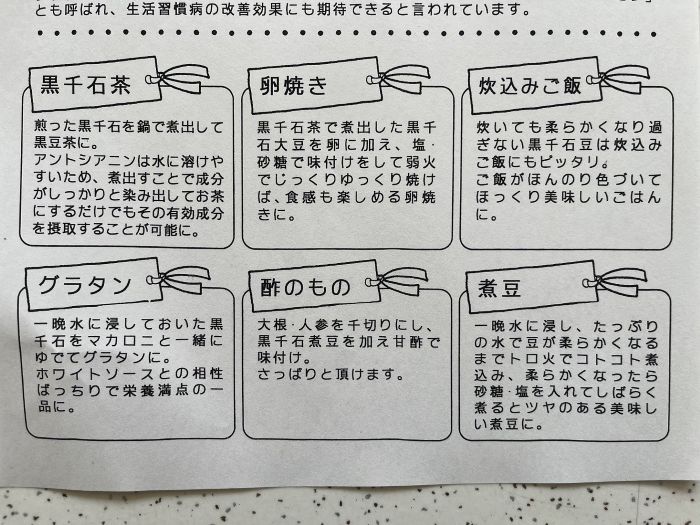 とも呼ばれ、生活習慣病の改善効果にも期待できると言われています。
黒千石茶
煎った黒千石を鍋で煮出して
黒豆茶に。
アントシアニンは水に溶けや
すいため、煮出すことで成分
がしっかりと染み出してお茶
にするだけでもその有効成分
を摂取することが可能に。
卵焼き
黒千石茶で煮出した黒千
石大豆を卵に加え、塩・
砂糖で味付けをして弱火
でじっくりゆっくり焼け
ば、食感も楽しめる卵焼
きに。
炊込みご飯
炊いても柔らかくなり過
ぎない黒千石豆は炊込み
ご飯にもピッタリ。
ご飯がほんのり色づいて
ほっくり美味しいごはん
に。
グラタン
一晩水に浸しておいた黒
千石をマカロニと一緒に
ゆでてグラタンに。
ホワイトソースとの相性
ばっちりで栄養満点の一
品に。
酢のもの
大根・人参を千切りにし、
黒千石煮豆を加え甘酢で
味付け。
さっぱりと頂けます。
煮豆
一晩水に浸し、たっぷり
の水で豆が柔らかくなる
までトロ火でコトコト煮
込み、柔らかくなったら
砂糖・塩を入れてしばらく
煮るとツヤのある美味し
い煮豆に。